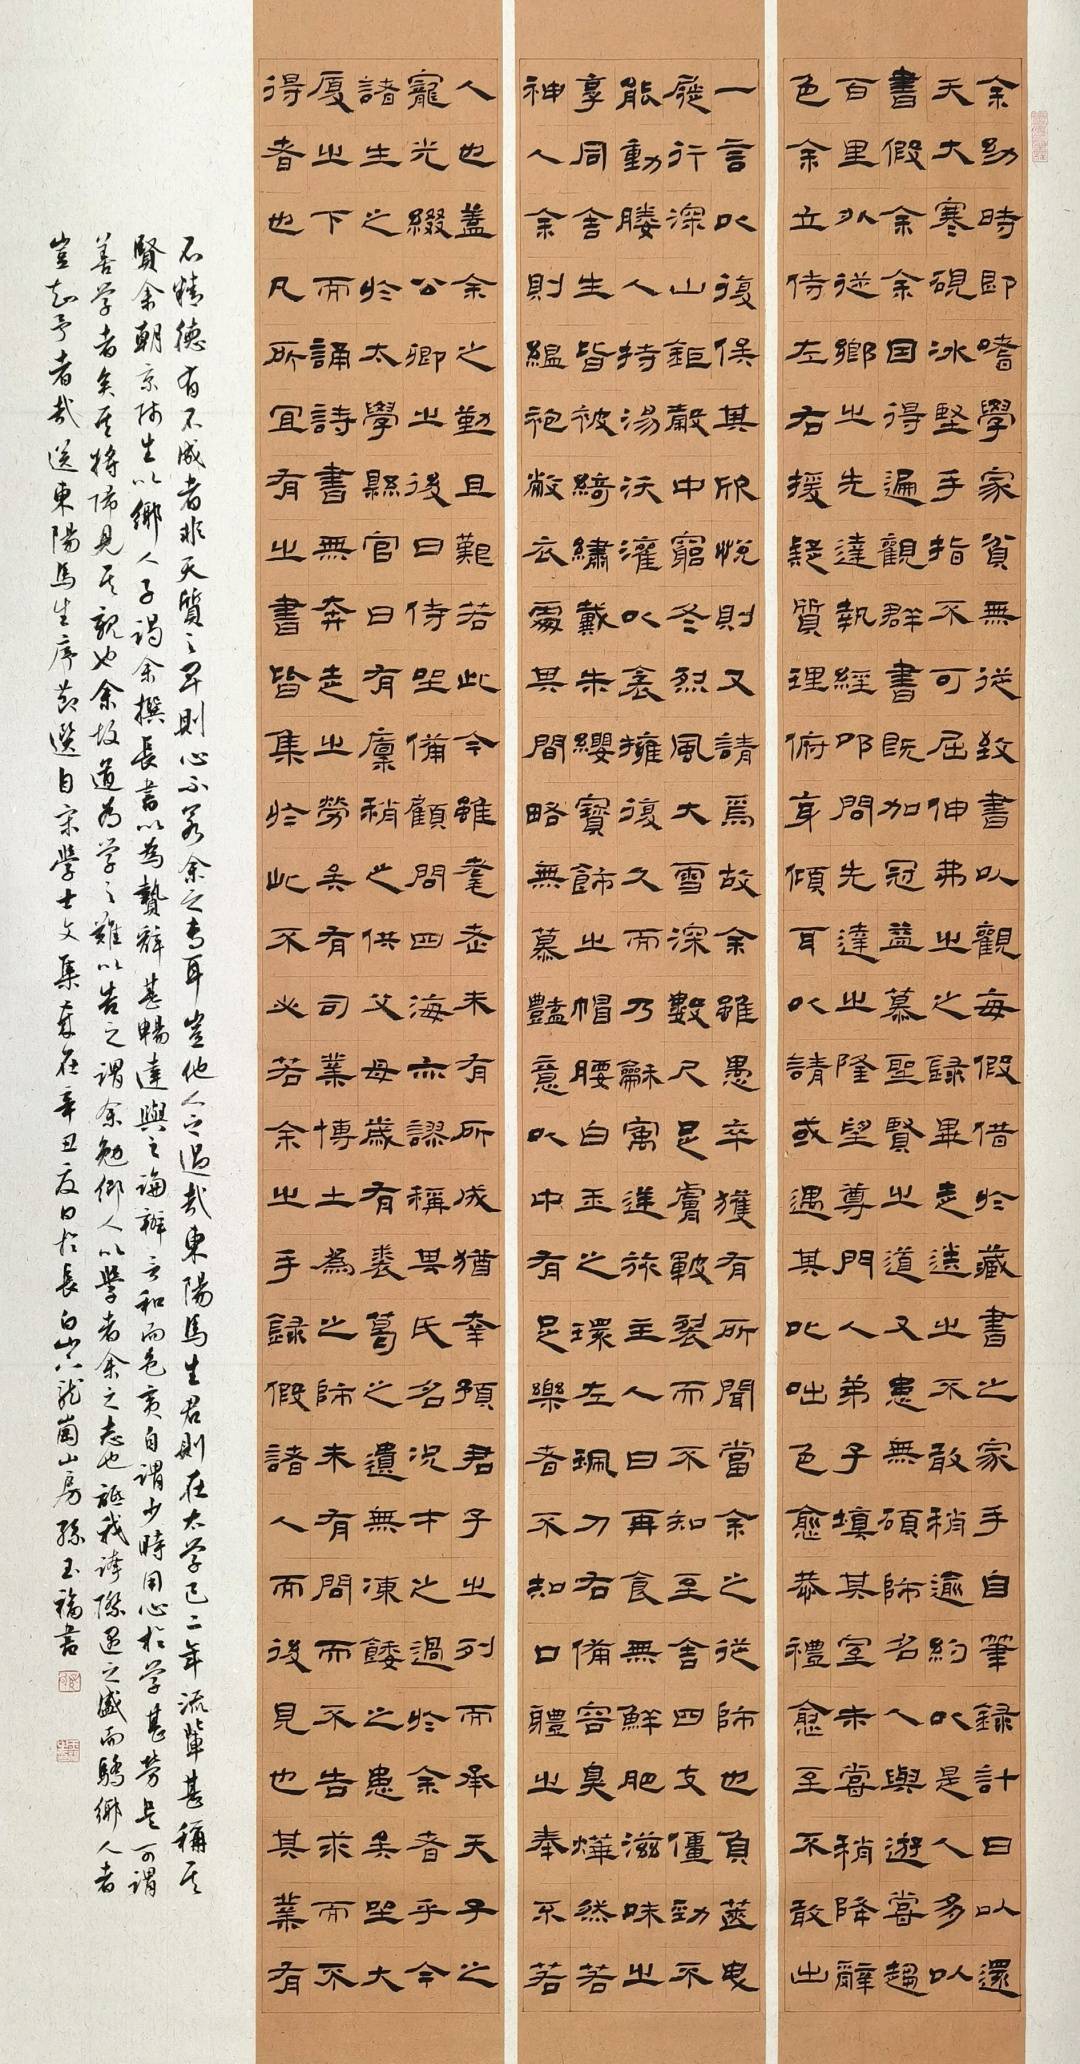 余幼時即嗜學家貧無從致書以觀每假借於藏書之家手自筆録計日以還
天大寒硯冰堅手指不可屈伸弗之之録畢走送之不敢稍逾約以是人多以
書假余余因得遍觀群書既加冠益慕聖賢之道又患無碩師名人與遊嘗趨
百里外從鄉之先達執經叩問先達之隆望尊門人弟子填其室未嘗稍降辭
色余立侍左右援疑質理俯身傾耳以請或遇其叱咄色愈恭禮愈至不敢出
一言以復俟其欣悅則又請焉故余雖愚卒獲有所聞當余之從師也負篋曳
屣行深山鉅嚴中窮冬烈風大雪深數尺足膚皸裂而不知至舍四支僵勁不
能動媵人持湯沃灌以衾擁復久而乃龢寓逆旅主人日再食無鮮肥滋味之
享同舍生皆被綺繡戴朱纓寶飾之帽腰白玉之環左珮刀右備容臭燁然若
神人余則縕袍敝衣處其間略無慕豔意以中有足樂者不知口體之奉不若
人也蓋余之勤且艱若此今雖耄老未有所成猶幸預君子之列而承天子之
寵光綴公卿之後日侍坐備顧問四海亦謬稱其氏名況才之過於余者乎今
諸生之於太學縣官日有廩稍之供父母歲有裘葛之遺無凍餒之患矣坐大
廈之下而誦詩書無奔走之勞矣有司業博士為之師未有問而不告求而不
得者也凡所宜有之書皆集於此不必若余之手録假諸人而後見也其業有
不精德有不成者非天質之卑則心不若余之專耳豈他人之過哉東陽馬生君則在太学已二年流輩甚稱其
賢余朝京師生以鄉人子謁余撰長書以為贄辭甚暢達與之論辨言和而色夷自謂少時用心於学甚勞是可謂
善学者矣其將歸見其親也余故道為学之難以告之謂余勉鄉人以學者余之志也詆我誇際遇之盛而驕鄉人者
豈知予者哉送東陽馬生序節選自宋學士文集歲在辛丑夏日於長白山龍崗山房孫玉福書